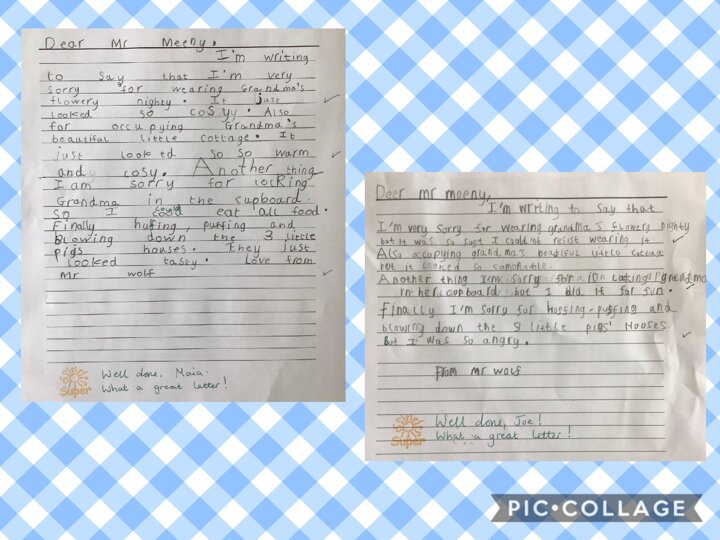 Dear Mr Meeny.
I'm writing
to say that I'm very
sorry for wearing Grandma's
flowery nighty. It just
looked so cosy. Also
for occupying Grandma's
beautiful little cottage. It
just looked so so warm
and cosy. Another thing
I am sorry for locking
Grandma in the cupboard.
So I could eat all food.
Finally hufing, puffing and
blowing down the 3 little
pigs houses. They just
looked tasty. Love from
Mr wolf
Super
Well done, Maia.
What a great letter!
Dear mr meeny,
I'm writing to say that
I'm very sorry for wearing grandma's flowery nighty
but it was so soft I couldn't resist wearing it
Also occupying grandma's beautiful little cottage
but it looked so
Another thing I'm sorry for is locking grandma
in her cupboard but I did it for fun.
Finally I'm sorry for huffing, puffing and
blowing down the 3 little pigs' Houses.
But I was so angry.
From Mr wolf
Super
Well done, Joe!
What a great letter!
PIC•COLLAGE